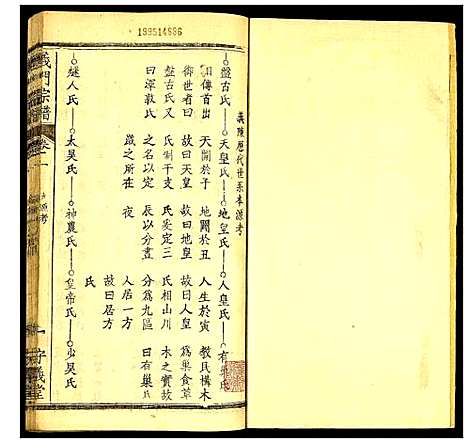 199514686
義陳歷代世系本源考
盤古氏——天皇氏——地皇氏——人皇氏——有巢氏
相傳首出 天開於子 地闢於丑 人生於寅 教民構木
御世者曰 故曰天皇 故曰地皇 故曰人皇 為巢食草
盤古氏又 氏制干支 氏爰定三 氏相山川 木之實故
曰渾敦氏 之名以定 辰以分晝 分為九區 曰有巢氏
歲之所在 夜 人居一方
故曰居方
氏
燧人氏——太昊氏——神農氏——皇帝氏——少昊氏
義門宗譜
卷一
源考
一
守義堂